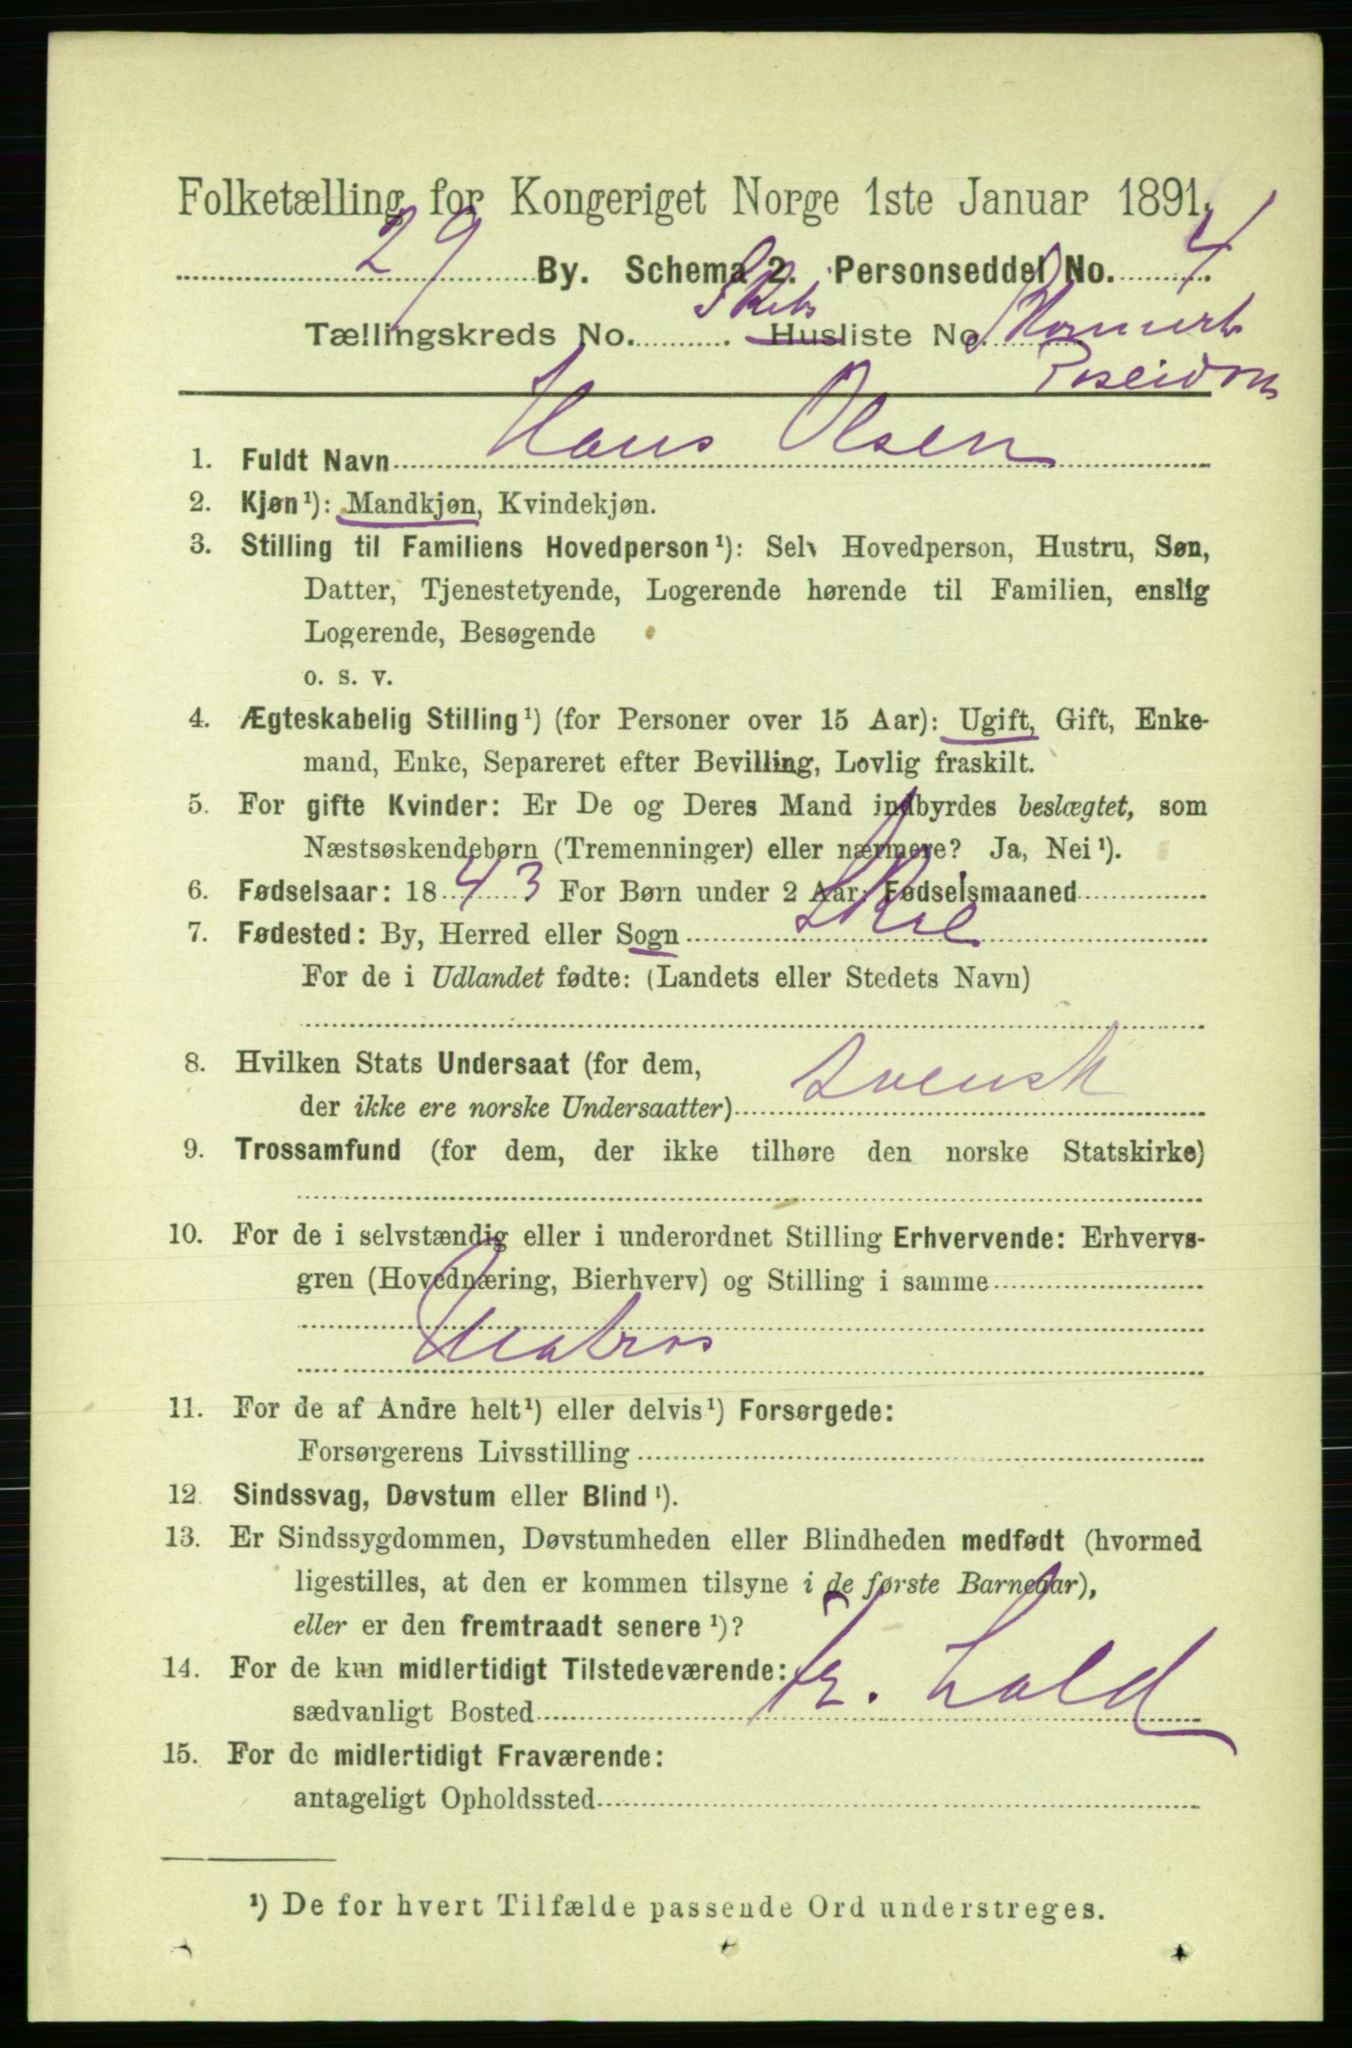 Folketælling for Kongeriget Norge 1ste Januar 1891.
29 By. Schema 2. Personseddel No. 4
Tællingskreds No. Skibs Husliste No.
Poseidon
1. Fuldt Navn Hans Olsen
2. Kjøn¹): Mandkjøn, Kvindekjøn.
3. Stilling til Familiens Hovedperson¹): Selv Hovedperson, Hustru, Søn,
Datter, Tjenestetyende, Logerende hørende til Familien, enslig
Logerende, Besøgende
o. s. v.
4. Ægteskabelig Stilling¹) (for Personer over 15 Aar): Ugift, Gift, Enke-
mand, Enke, Separeret efter Bevilling, Lovlig fraskilt.
5. For gifte Kvinder: Er De og Deres Mand indbyrdes beslægtet, som
Næstsøskendebørn (Tremenninger) eller nærmere? Ja, Nei¹).
6. Fødselsaar: 1843 For Børn under 2 Aar: Fødselsmaaned
7. Fødested: By, Herred eller Sogn
For de i Udlandet fødte: (Landets eller Stedets Navn)
8. Hvilken Stats Undersaat (for dem,
der ikke ere norske Undersaatter) Svensk
9. Trossamfund (for dem, der ikke tilhøre den norske Statskirke)
10. For de i selvstændig eller i underordnet Stilling Erhvervende: Erhvervs-
gren (Hovednæring, Bierhverv) og Stilling i samme
Matros
11. For de af Andre helt¹) eller delvis¹) Forsørgede:
Forsørgerens Livsstilling
12. Sindssvag, Døvstum eller Blind¹).
13. Er Sindssygdommen, Døvstumheden eller Blindheden medfødt (hvormed
ligestilles, at den er kommen tilsyne i de første Barneaar),
eller er den fremtraadt senere¹)?
14. For de kun midlertidigt Tilstedeværende:
sædvanligt Bosted
15. For de midlertidigt Fraværende:
antageligt Opholdssted
¹) De for hvert Tilfælde passende Ord understreges.